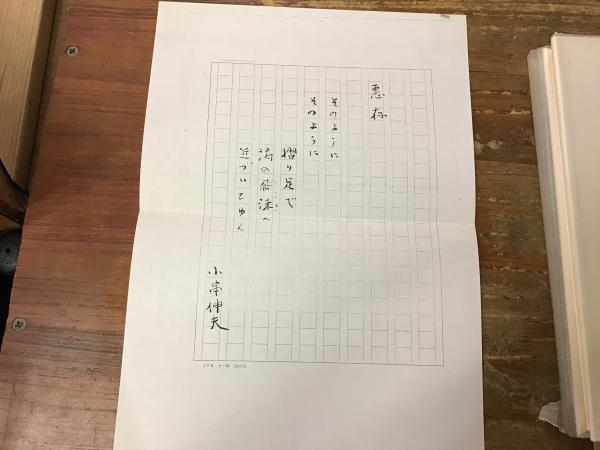 悪存
そのように
そのように
摺り足で
濤の飛沫へ
近づいてゆく
小串伸夫